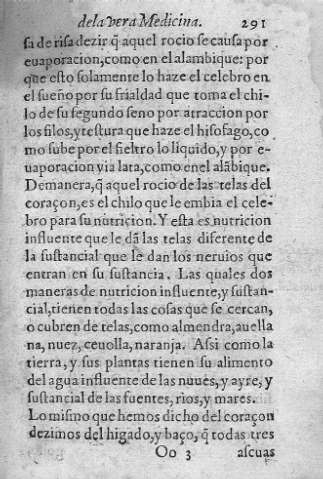 de la vera Medicina. 291
sa de risa dezir q̃ aquel rocio se causa por
euaporacion, como en el alambique: por
que esto solamente lo haze el celebro en
el sueño por su frialdad que toma el chi-
lo de su segundo seno por atraccion por
los filos, y testura que haze el hisofago, co
mo sube por el fieltro lo liquido, y por e-
uaporacion y ia lata, como en el alãbique.
Demanera, q̃ aquel rocio de las telas del
coraçon, es el chilo que le embia el cele-
bro para su nutricion. Y esta es nutricion
influente que le dã las telas diferente de
la sustancial que le dan los neruios que
entran en su sustancia. Las quales dos
maneras de nutricion influente, y sustan-
cial, tienen todas las cosas que se cercan,
o cubren de telas, como almendra, auella
na, nuez, ceuolla, naranja. Assi como la
tierra, y sus plantas tienen su alimento
del agua influente de las nuues, y ayre, y
sustancial de las fuentes, rios, y mares.
Lo mismo que hemos dicho del coraçon
dezimos del higado, y baço, q̃ todas tres
Oo 3 ascuas